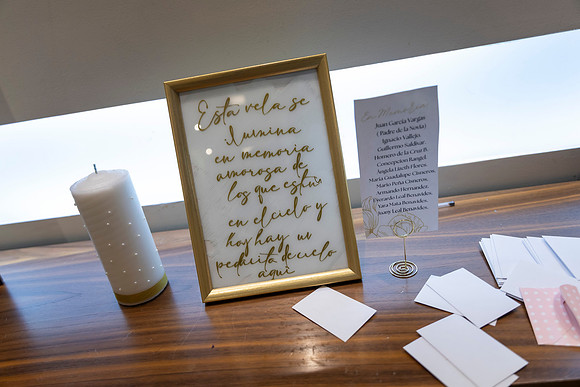 Esta vela se
ilumina
en memoria
amorosa de
los que están
en el cielo y
hoy hay un
pedacito de cielo
aquí
En Memoria
Juan García Vargas
( Padre de la Novia)
Ignacio Vallejo.
Guillermo Saldivar.
Homero de la Cruz B.
Concepcion Rangel.
Angela Lizeth Flores.
María Guadalupe Cisneros.
Mario Peña Cisneros.
Armando Hernandez.
Everardo Leal Benavides.
Yara Mata Benavides.
Juany Leal Benavides.